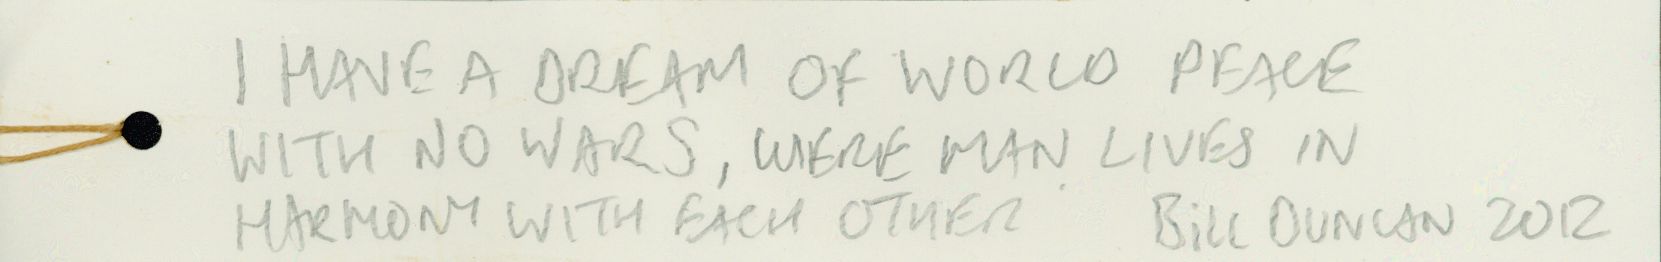 I HAVE A DREAM OF WORLD PEACE
WITH NO WARS, WERE MAN LIVES IN
HARMONY WITH EACH OTHER Bill DUNCAN 2012